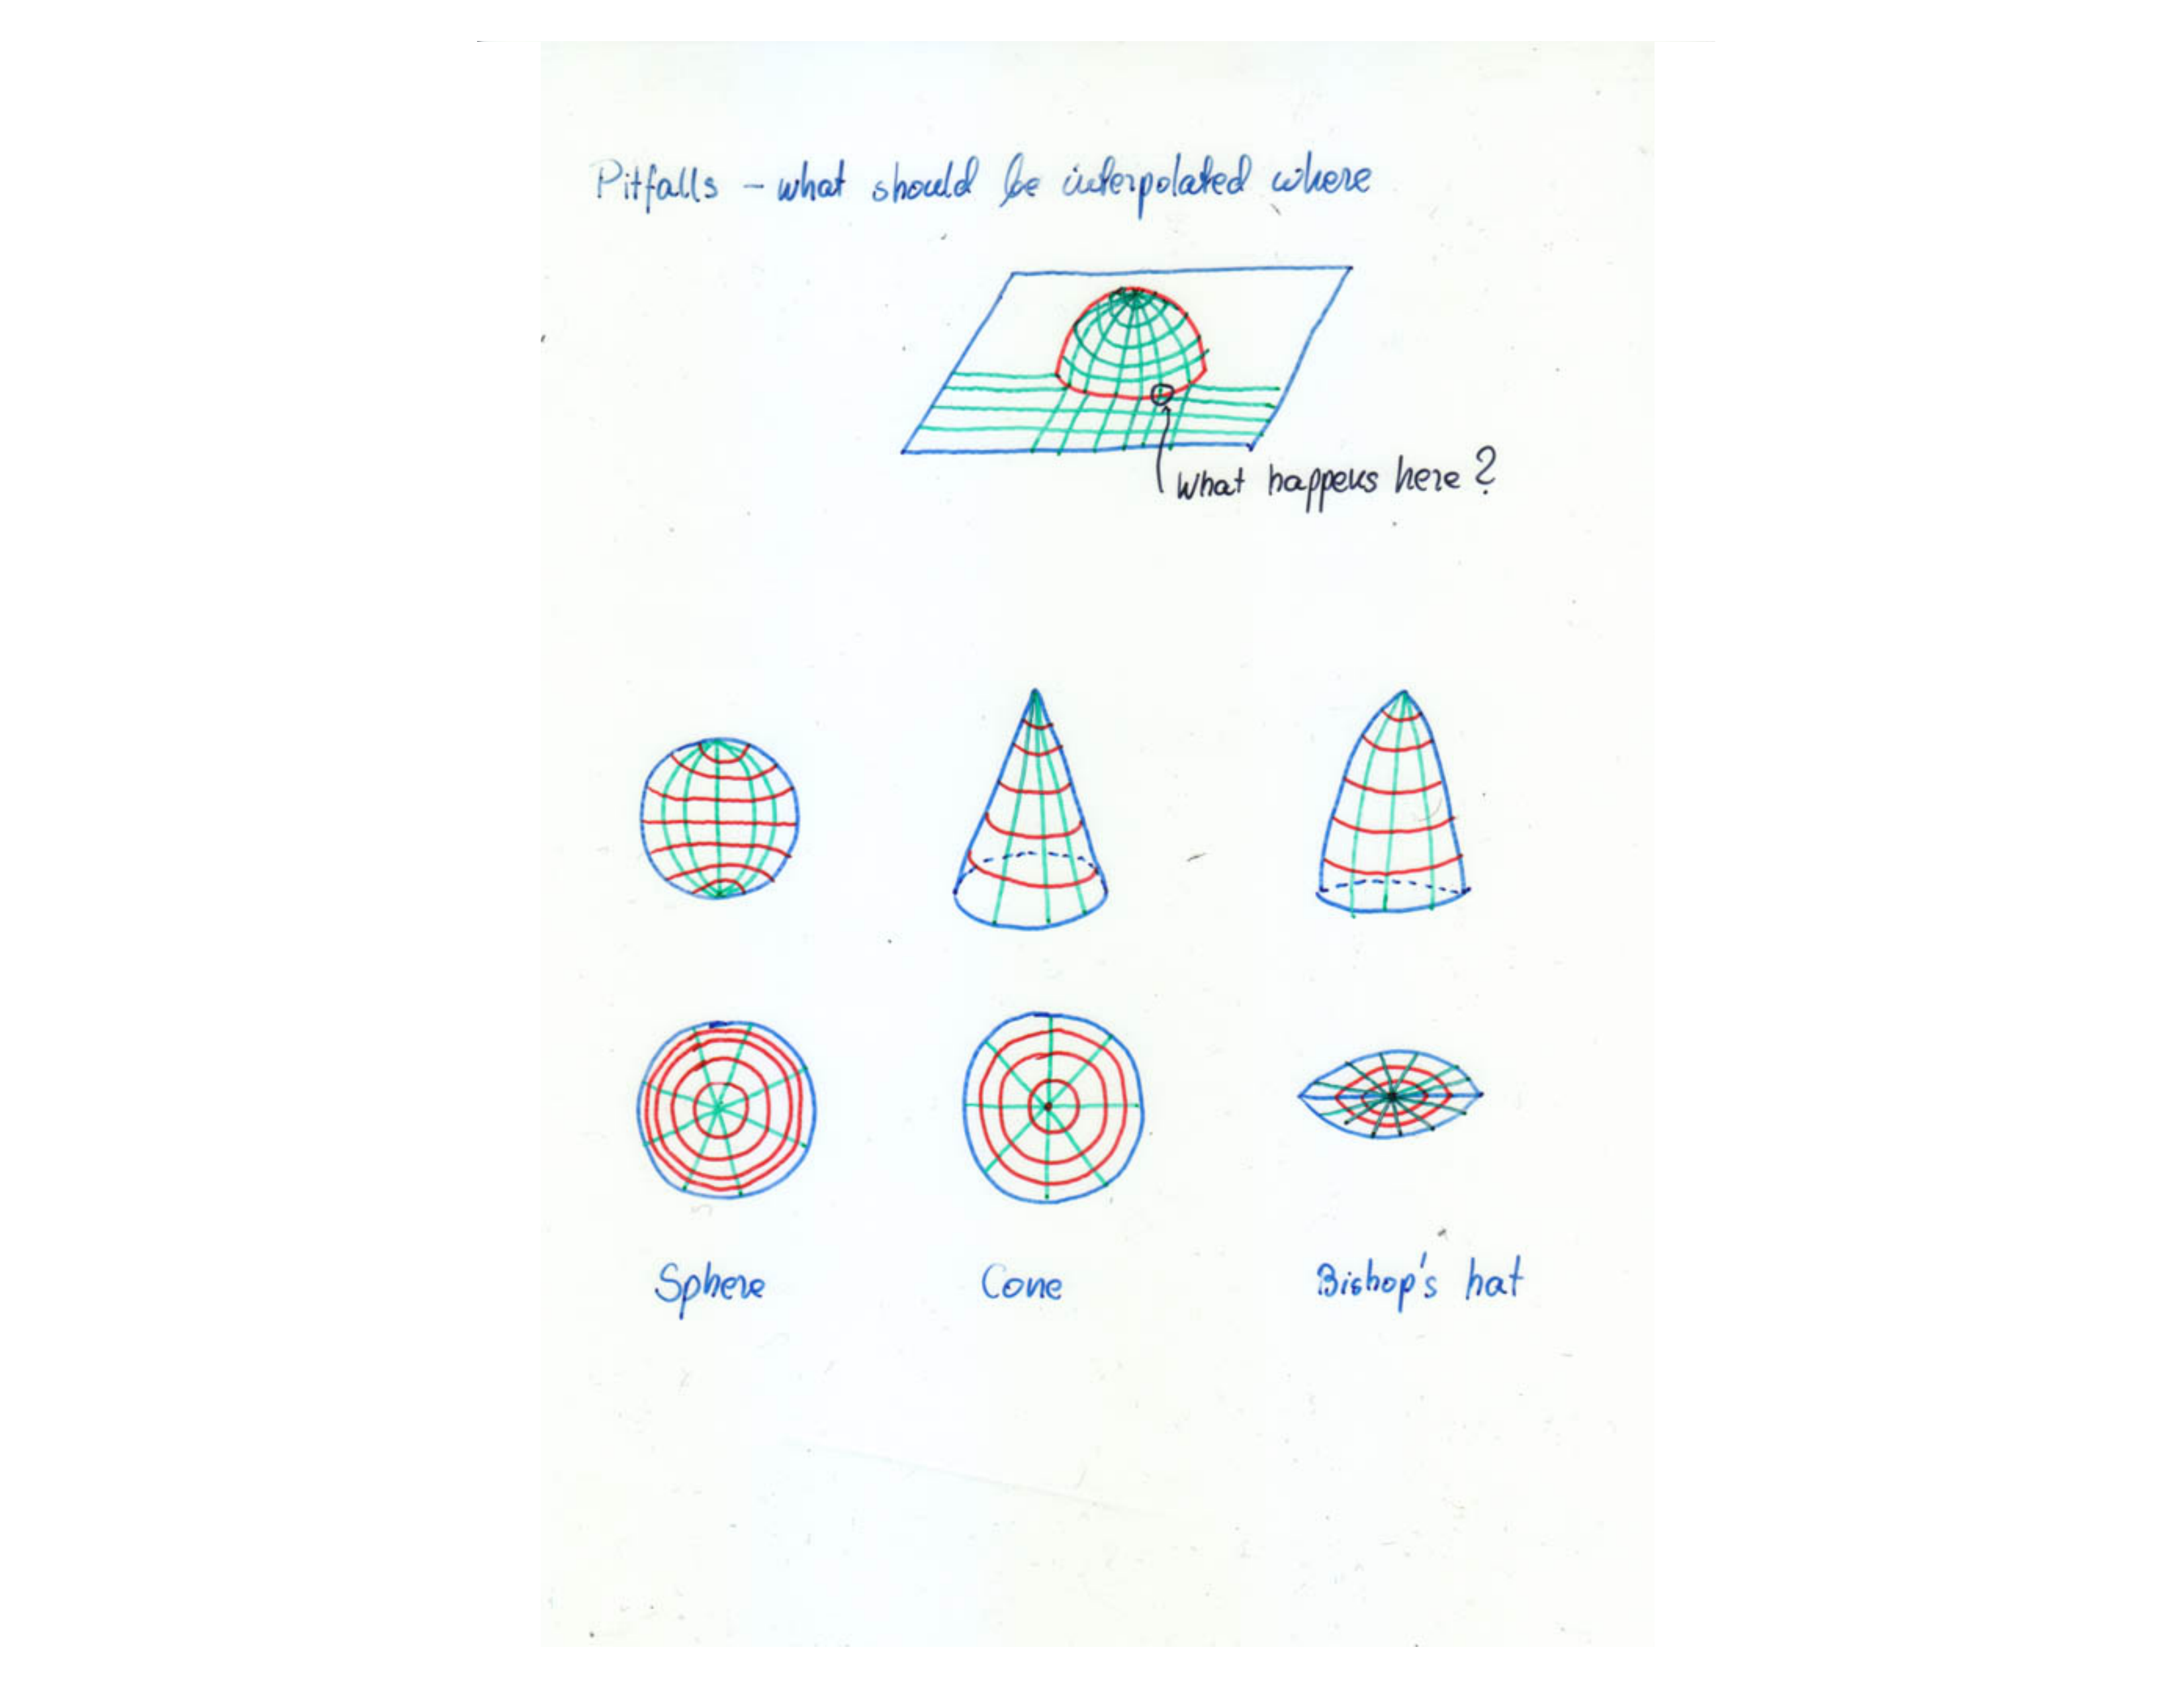 Pitfalls - what should be interpolated where
What happens here?
Sphere
Cone
Bishop's hat